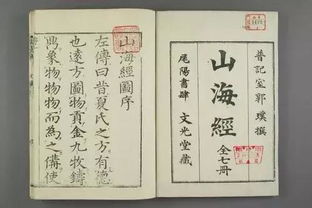 晉記室郭璞撰
山海經 全七册
尾陽書肆 文光堂藏
山海經圖序
左傳曰昔夏氏之方有德
也遠方圖物貢金九牧鑄
鼎象物物物而爲之備使